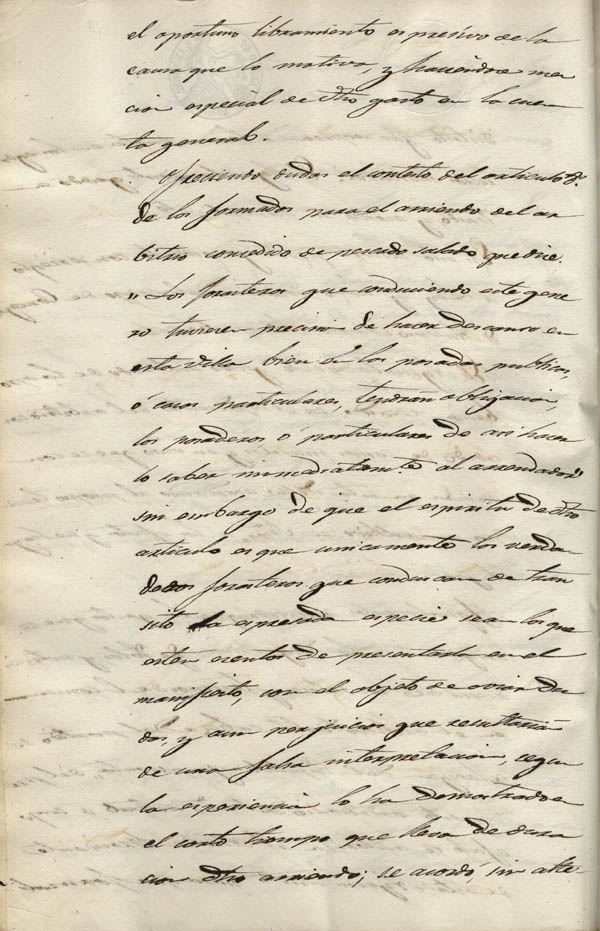 el oportuno libramiento espresivo de la
causa que lo motiva, y haciendose men
cion especial de dho gasto en la cuen
ta general.
Ofreciendo dudas el contesto del articulo
de los formados para el arriendo del ar
bitrio concedido de pescado salado que dice.
" Los forasteros que conduciendo este gene
ro tuvieren precision de hacer descanso en
esta villa bien en los posadas publicas,
ó casas particulares, tendran obligacion,
los posaderos ó particulares de asi hacer
lo saber inmediatamte. al arrendador"
sin embargo de que el espiritu de dho
articulo es que unicamente los verda
deros forasteros que conduscan de tran
sito la espresada especie sean los que
esten esentos de presentarla en el
manifiesto, con el objeto de oviar du
das, y aun perjuicios que resultarian
de una falsa interpretacion, segun
la esperiencia lo ha demostrado en
el corto tiempo que lleva de dura
cion dho arriendo; se acordó, sin alte-